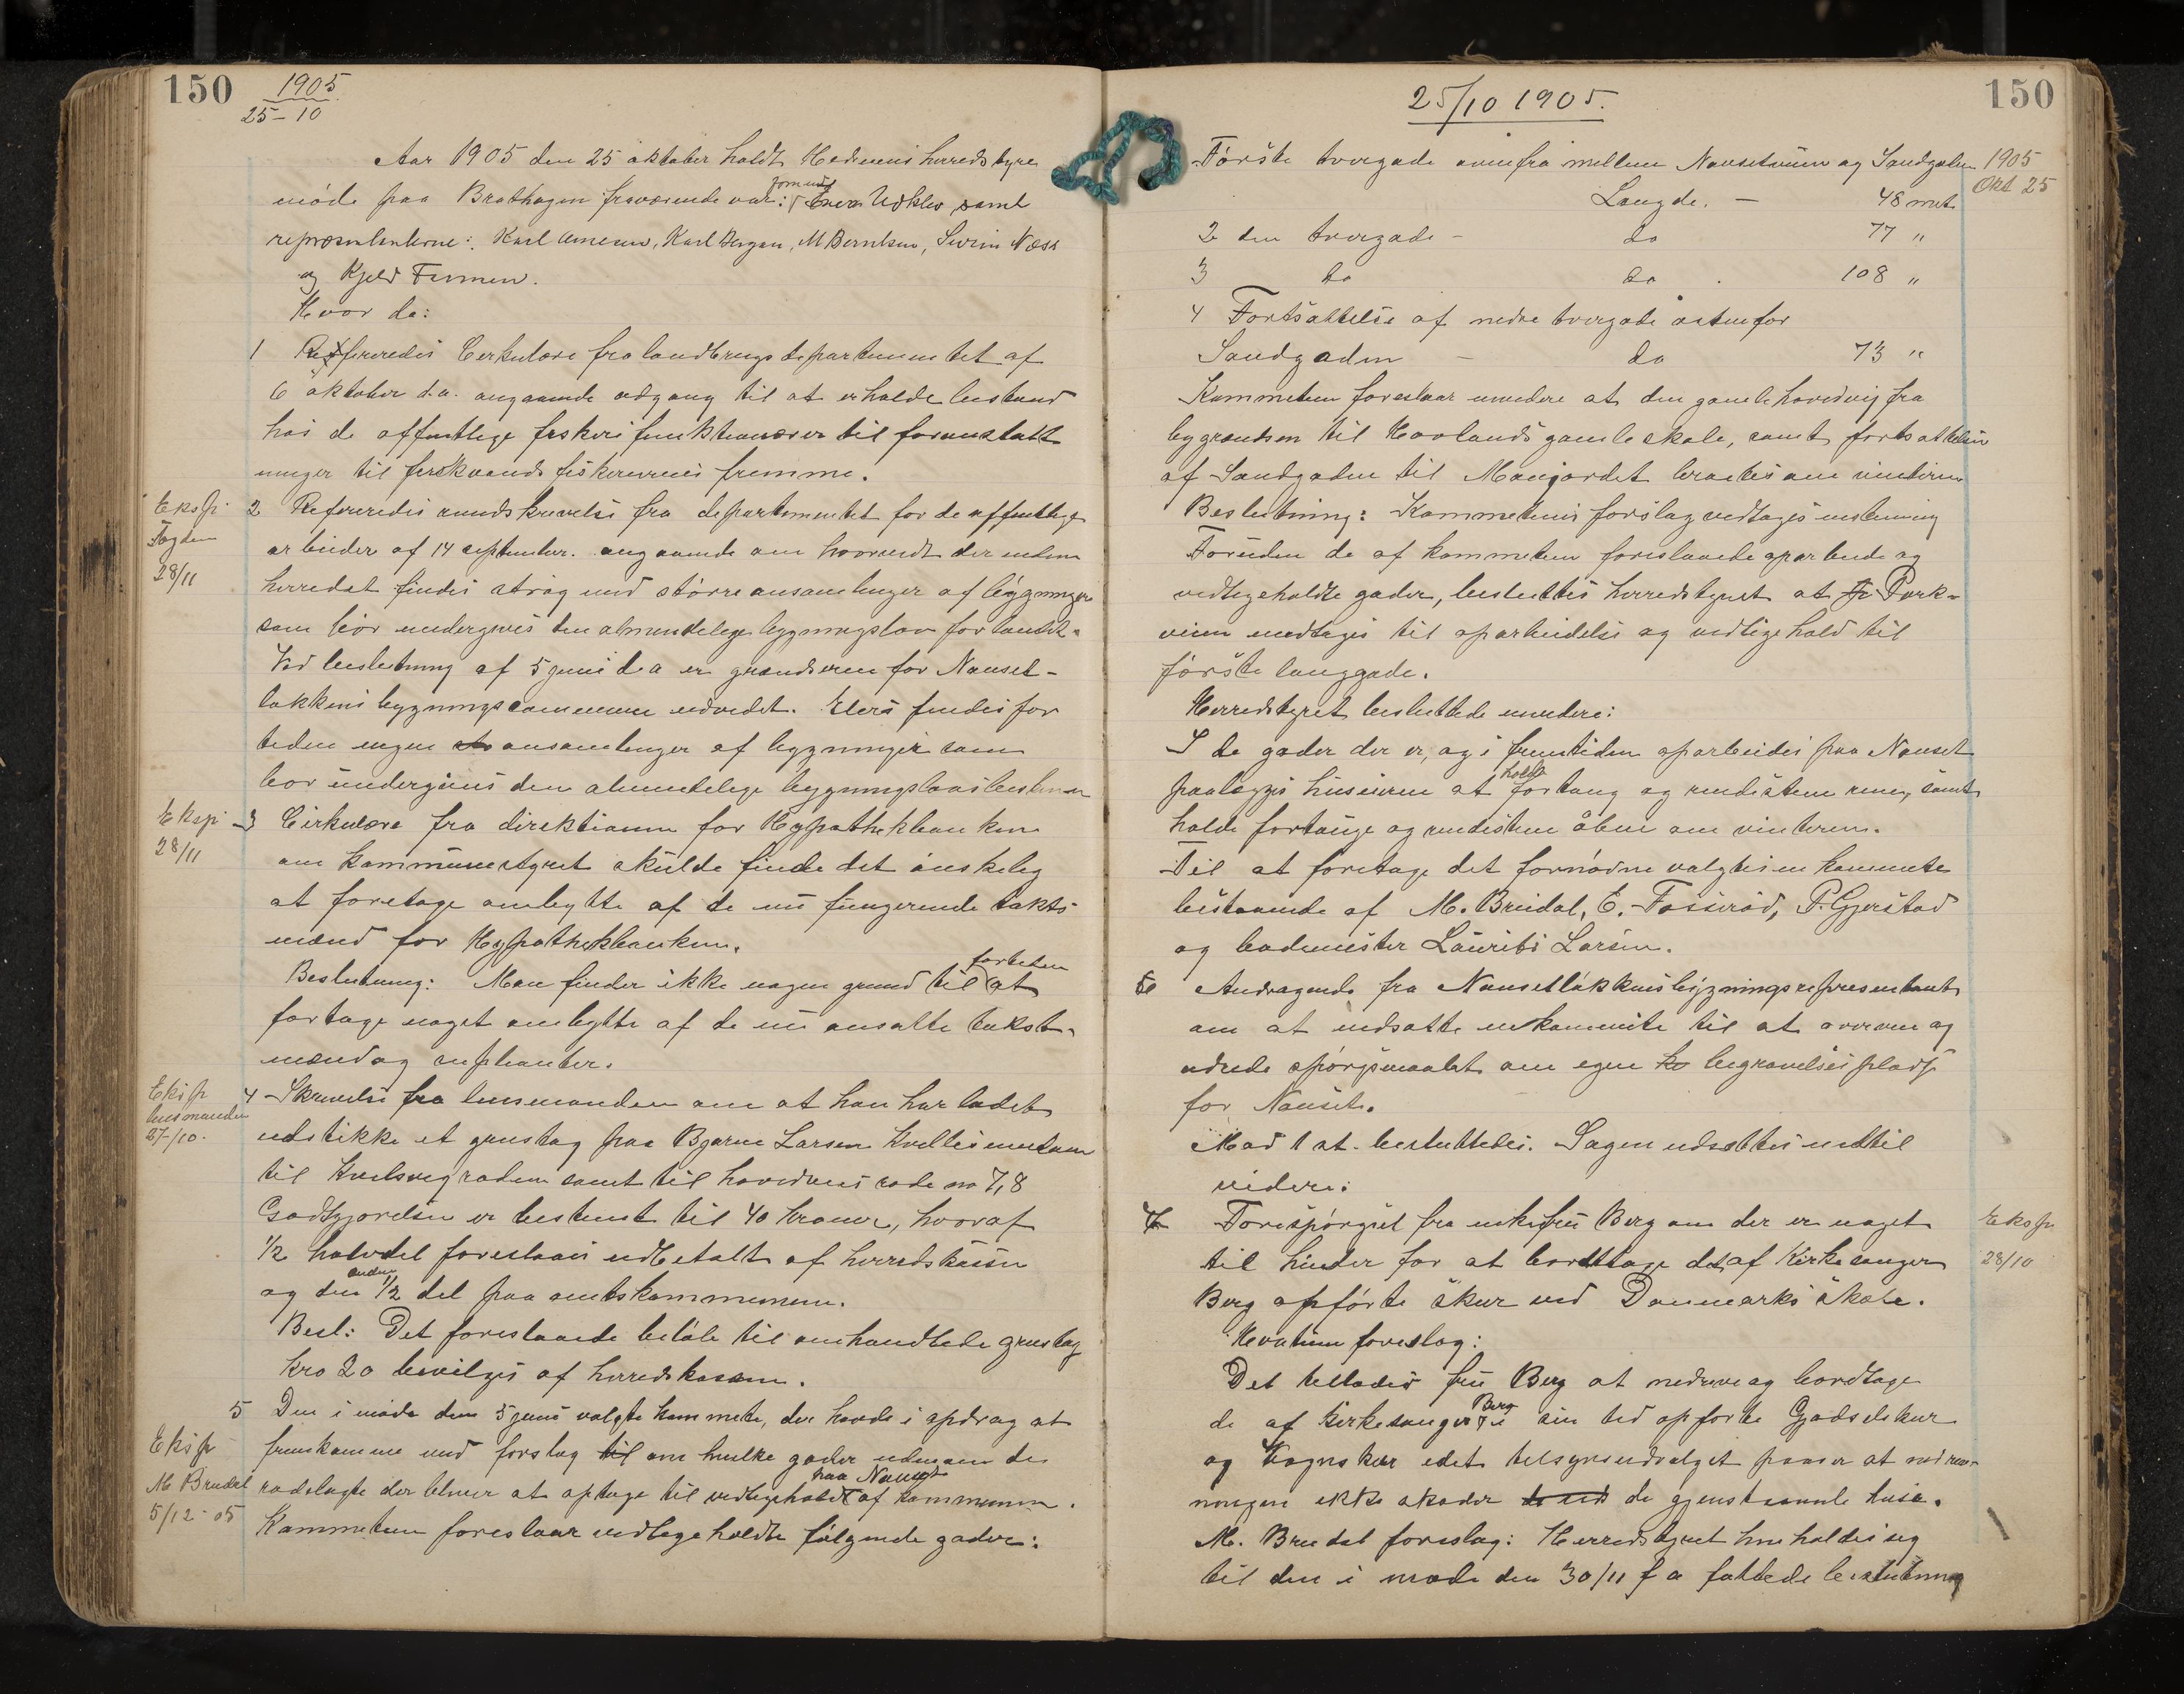 150
1905
25-10
Aar 1905 den 25 oktober holdt Hedrums herredstyre
møde paa Brathagen fraværende var: formand Enevr Udklev samt
repræsentanterne: Karl Amesen, Karl Bergan, M Berntsen, Severin Næss
og Kjeld Furmen.
Hvor da:
1 Refereredes Cerkulære fra landbrugsdepartementet af
6 oktober d.a. angaaende adgang til at erholde bestand
hos de offentlige feskerifunktionærer til foranstalt
ninger til ferskvands fiskeriernes fremme.
Eksp.
Fogden
28/11
2 Refereredes rundskrevelse fra departementet for de offentlige
arbeider af 14 september. angaaende om hvorvidt der inden
herredet findes strøg med större ansamlinger af bygninger
som bör undergives den almendelege bygningslov for landet.
Ved beslutning af 5 juni d.a er grændserne for Nanset-
løkkens bygningscommune udvidet. Elers findes for
tiden ingen ansamlinger af bygninger som
bor undergives den almendelege bygningslovs bestem
Eksp
28/11
3 Cirkulære fra direktionen for Hypothekbanken
om kommunestyret skulde finde det ønskeleg
at foretage ombytte af de nu fungerende takts
mænd for Hypothekbanken.
Beslutning: Man finder ikke nogen grund til fortiden at
fortage noget ombytte af de nu ansatte takst-
mænd og supleanter.
Eksp
lensmanden
27/10.
4 Skrivelse fra lensmanden om at han har ladet
udstikke et grustag paa Bjarne Larsen Kvelles eiendom
til Kvelsvegroden samt til hovedveis rode no 7,8
Godtgjorelsen er bestemt til 40 kroner, hvoraf
1/2 halvdel foreslaaes udbetalt af herredskassen
og den anden 1/2 del paa amtskommunen.
Besl: Det foreslaaede beløb til omhandlede grustag
kro 20 bevilges af herredskassen.
Eksp
M Bredal
5/12-05
5 Den i møde den 5 juni valgte kommete, der havde i opdrag at
fremkomme med forslag til om hvilke gader udenom de
rodelagte der bliver at optage til vedligeholdt paa Nanset af kommunen.
Kommeteen foreslaar vedlegeholdte følgende gader:
25/10 1905.
150
1905
Okt 25
Förste tvergade ovenfra mellem Nansetveien og Sandgaden
Længde. - 48 met.
2 den tvergade - do 77 "
3 do do. 108 "
4 Fortsættelse af nedre tvergade østenfor
Sandgaden - do 73 "
Kommeteen foreslaar videre at den gamle hovedvej fra
bygrændsen til Hovlands gamle skole, samt fortsættelsen
af Sandgaden til Manjordet brøites om vinteren
Beslutning: Kommeteens forslag vedtages enstemmig
Foruden de af kommeteen foreslaaede oparbeide og
vedlegeholdte gader, besluttes herredstyret at Park-
veien medtages til oparbeidelse og vedlige hold til
förste langgade.
Herredstyret besluttede videre:
I de gader der er, og i fremtiden oparbeides paa Nanset
paalægges huseierne at holde fortoug og rendestene rene, samt
holde fortauge og rendestene åbne om vinteren.
Til at foretage det fornødne valgtes en kommete
bestaaende af M. Bredal, E. Fosserød, P. Gjerstad
og bademester Laurits Larsen.
6 Andragende fra Nansetløkkens bygningsrepresentant
om at nedsætte en kommite til at overveie og
udrede spørgsmaalet om egen begravelses plads
for Nanset.
Mod 1 st. besluttedes. Sagen udsættes indtil
videre.
Eksp
28/10
7 Forespørgsel fra enkefru Berg om der er noget
til hinder for at borttage det af Kirkesanger
Berg opførte skur ved Danmarks skole.
Hvatum foreslog:
Det tellades fru Berg at nedrive og bordtage
de af Kirkesanger Berg i sin tid opförte Gjødselskur
og Vognskur idet telsynsudvalget passer at nedriv-
ningen ikke skader de gjenstaaende huse.
M. Bredal foreslog: Herredstyret henholder seg
til den i møde den 30/11 f a fattede beslutning